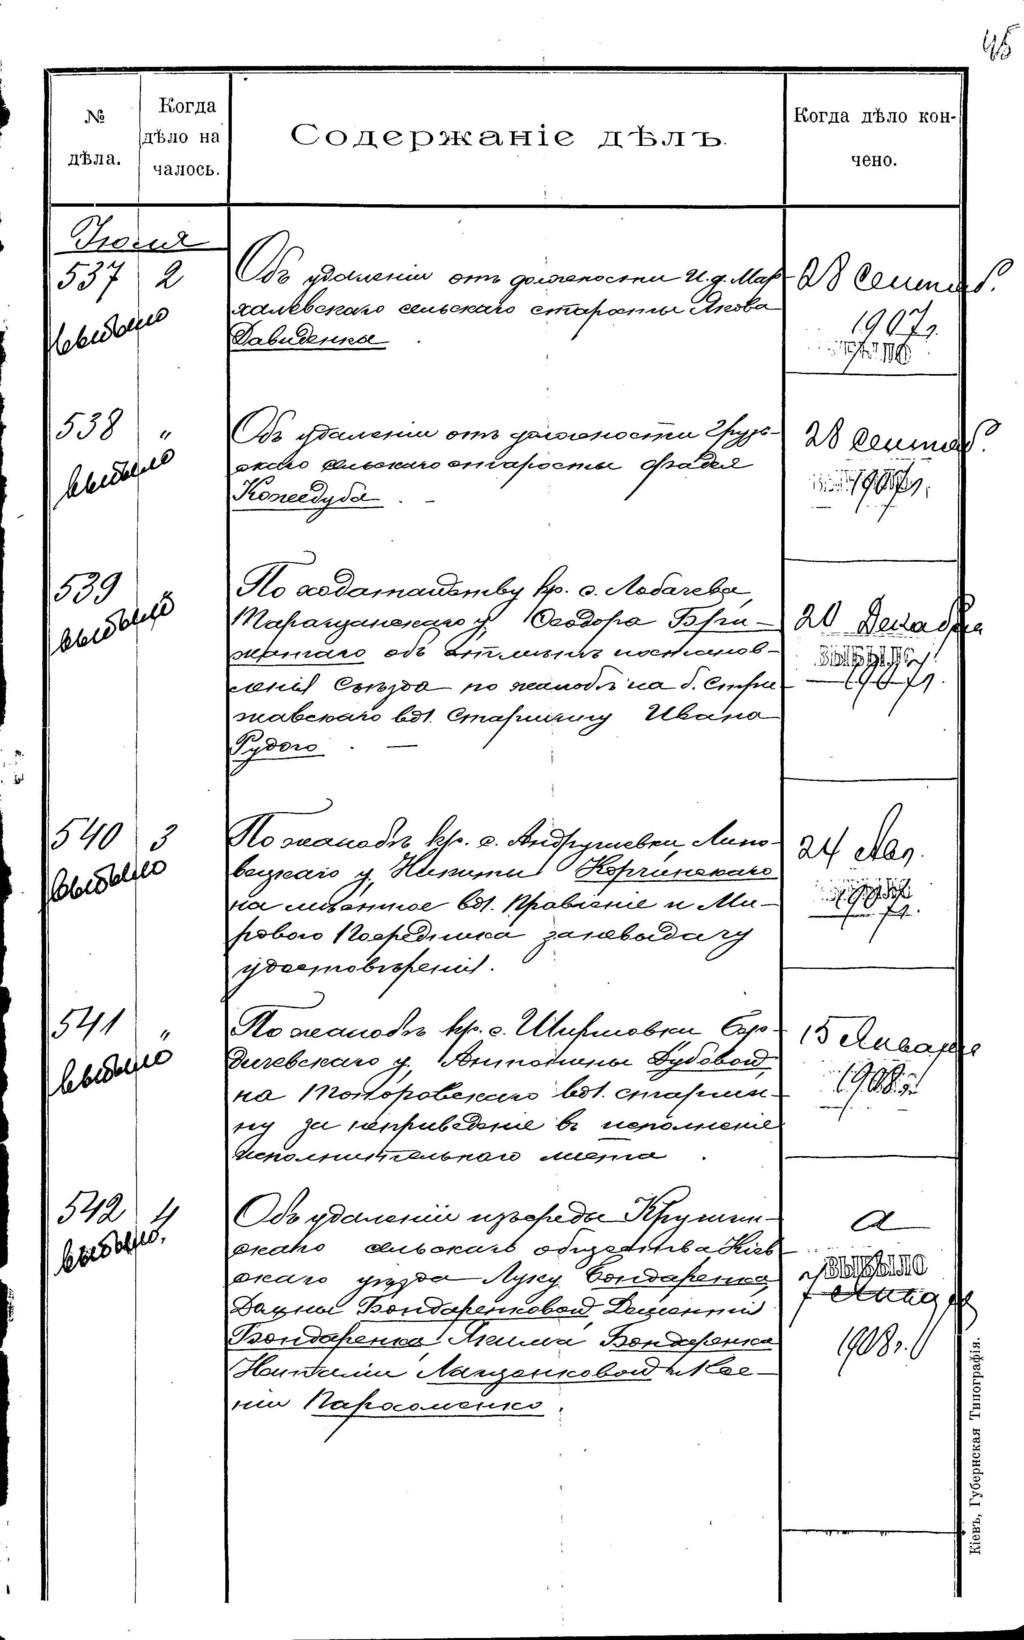 45
№ дѣла.
Когда дѣло началось.
Содержаніе дѣлъ.
Когда дѣло кончено.
Іюля
537 2
выбыло
Объ удаленіи отъ должности И. д. Мар-
халевскаго сельскаго старосты Якова
Давиденка
28 Сентяб.
1907 г.
538 "
выбыло
Объ удаленіи отъ должности Грузь-
скаго сельскаго старосты Фадея
Кожедуба
28 Сентяб.
1907 г.
539
выбыло
По ходатайству кр. с. Лобачева,
Таращанскаго у. Ѳеодора
объ отмѣнѣ постанов-
ленія Съѣзда по жалобѣ на б. Стри-
жавскаго вол. Старшину Ивана
Рудого
20 Декабря
ВЫБЫЛО
1907 г.
540 3
выбыло
По жалобѣ кр. с. Андрушевки, Липо-
вецкаго у. Никиты Корчинскаго
на мѣстное вол. Правленіе и Ми-
рового Посредника за невыдачу
удостовѣренія.
24 Авг.
1907 г.
541 "
выбыло
По жалобѣ кр. с. Ширмовки Бер-
дичевскаго у. Антонины Дубовой
на Топоровскаго вол. старши-
ну за неприведеніе въ исполненіе
исполнительнаго листа.
15 Января
1908 г.
542 4
выбыло.
Объ удаленіи изъ среды Крушин-
скаго сельскаго общества Кіев-
скаго уѣзда Луку Бондаренка,
Бондаренковой,
Бондаренко, Якима Бондаренка
Наталіи Лазаренковой и Ксе-
ніи Пархоменко.
а
ВЫБЫЛО
1908 г.
Кіевъ, Губернская Типографія.